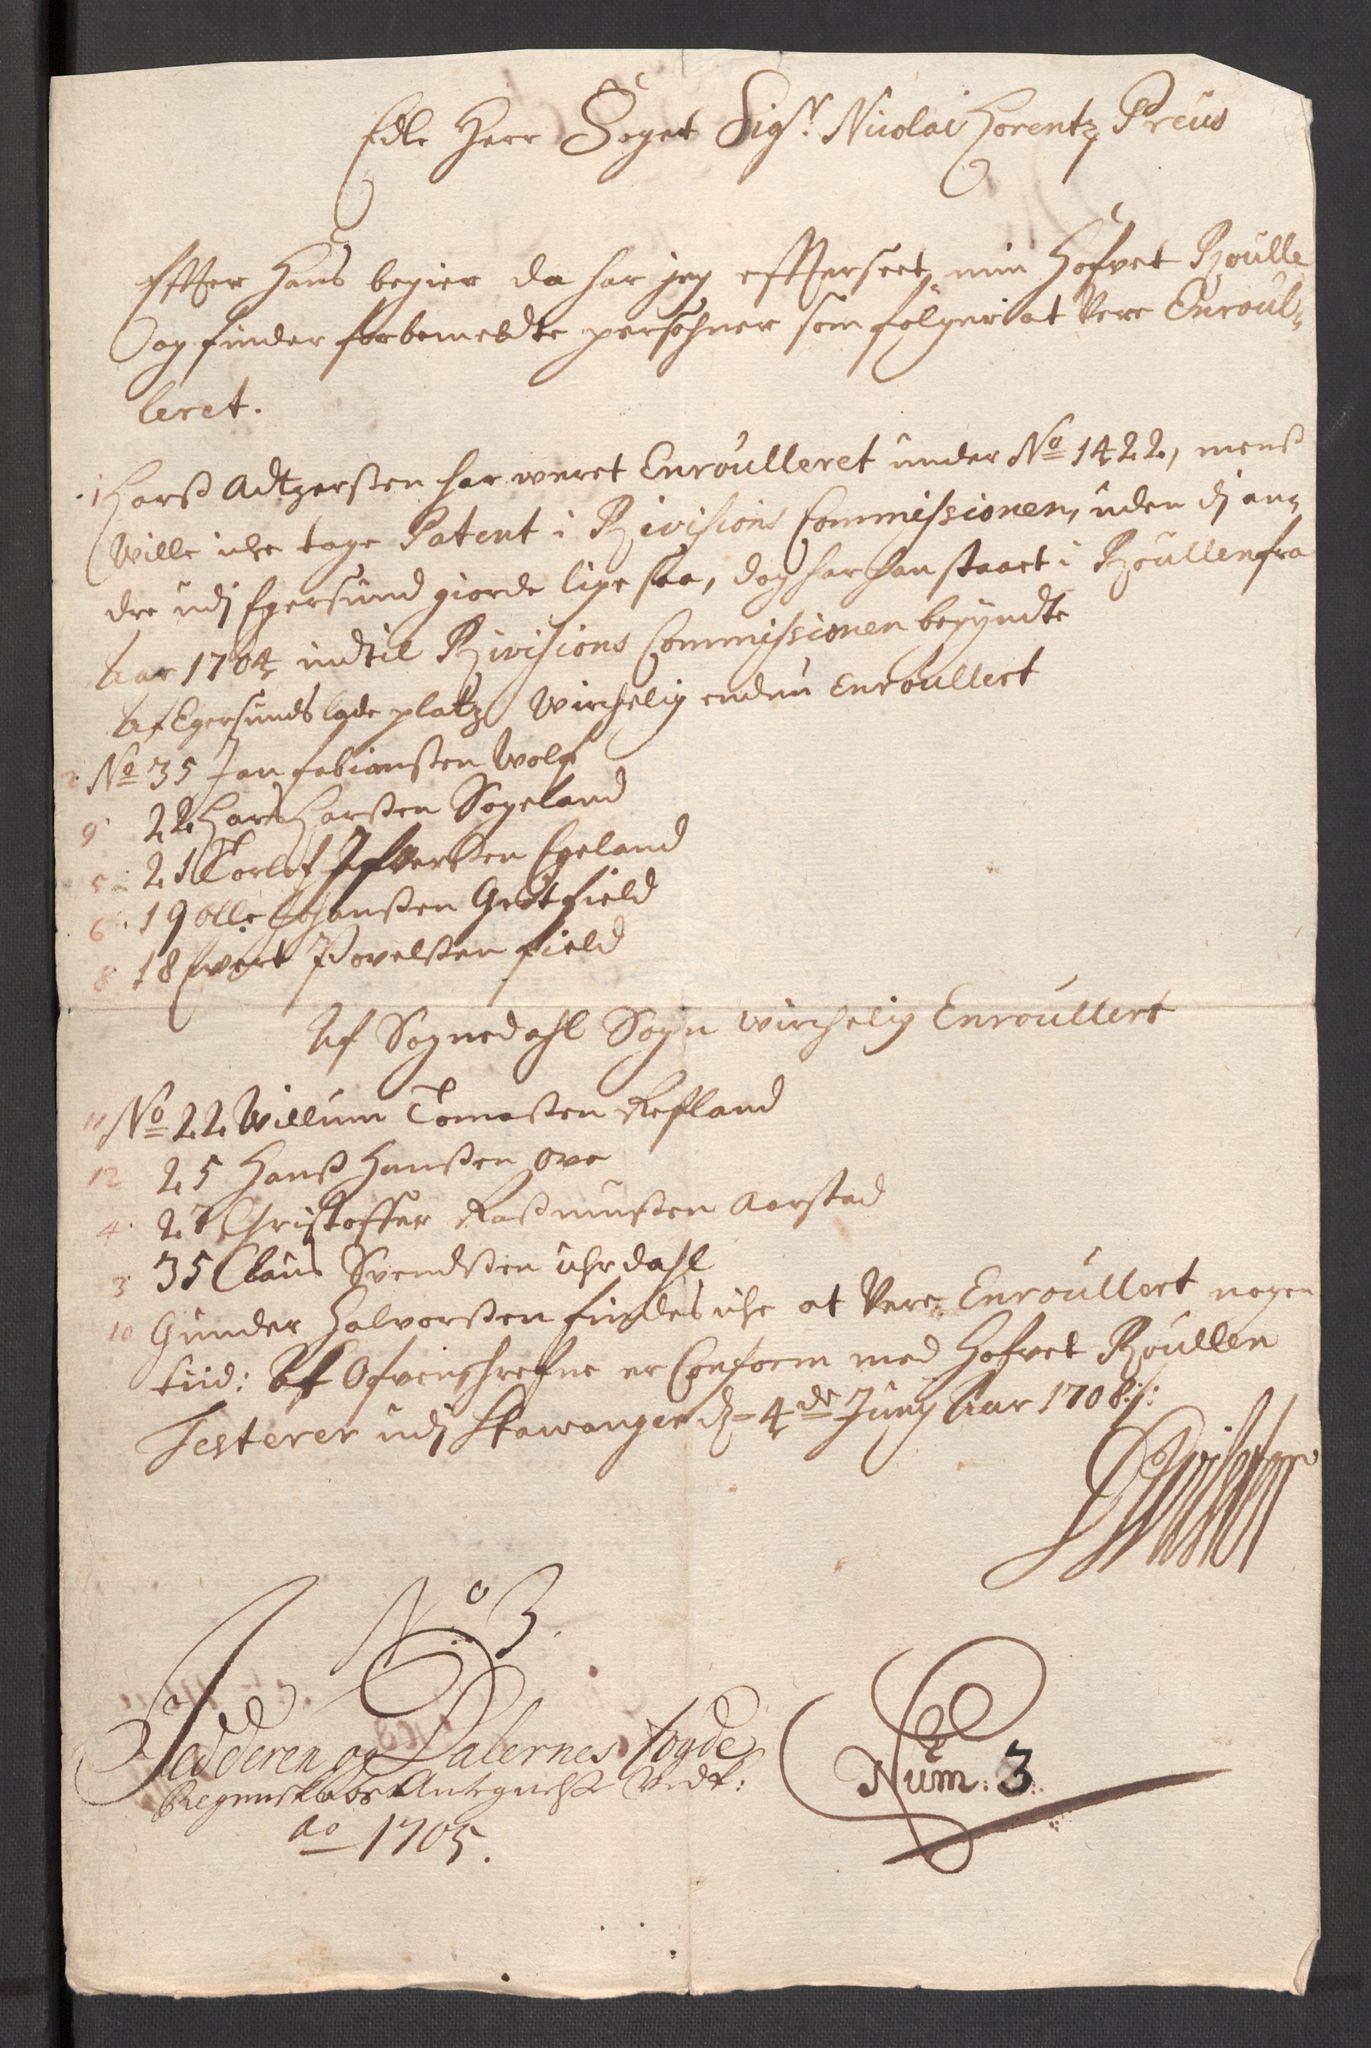 Edle Herr Foget Sigr. Nicolai Lorentz Preus
Effter Hans begier da har jeg effterseet min Hofvet Roulle
og finder forbemeldte persohner som følger at Vere Enroul-
leret.
1 Larß Adtzersten har weret Enroulleret under No 1422, menß
Wille iche tage Patent i Rivisions Commissionen, uden dj an-
dre udj Egersund giorde lige saa, dog har han staaet i Roullen fra
Aar 1704 indtil Rivisions Commissionen begyndte
Af Egersunds lade platz Wirchelig endnu Enroullert
2 No 35 Jan Fabiansten Wolf
9 22 Lars Larsten Sogeland
5 21 Torlof Ifversten Egeland
6 19 Olle Johansten Gestfield
8 18 Evert Povelsten Field
Af Sognedahl Sogn wirchelig Enroullert
11 No 22 Willum Tomasten Refland
12 25 Hanß Hansten Ove
4 27 Christoffer Raßmusten Aarstad
3 35 Claus Svendsten Uhrdahl
10 Gunder Halvorsten findes iche at Vere Enroullert nogen
tiid: At Ofvenschrefne er Conform med Hofvet Roullen
Testerer udj Stawanger d. 4de Junij Aar 1708:/:
No 3.
Jedderen og Dalernes fogde
Regenskabs Antegnelse Vedk:
Ao 1705.
Num: 3.